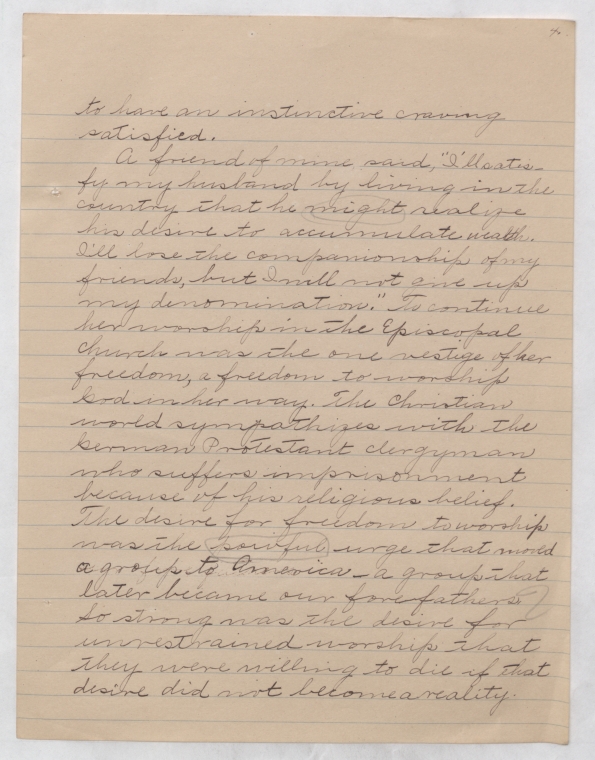 4.
to have an instinctive craving
satisfied.
A friend of mine said, "I'll satis-
fy my husband by living in the
country that he might realize
his desire to accumulate wealth.
I'll lose the companionship of my
friends, but I will not give up
my denomination." To continue
her worship in the Episcopal
church was the one vestige of her
freedom, a freedom to worship
God in her way. The Christian
world sympathizes with the
German Protestant clergyman
who suffers imprisonment
because of his religious belief.
The desire for freedom to worship
was the urge that moved
a group to America - a group that
later became our forefathers
So strong was the desire for
unrestrained worship that
they were willing to die if that
desire did not become a reality.